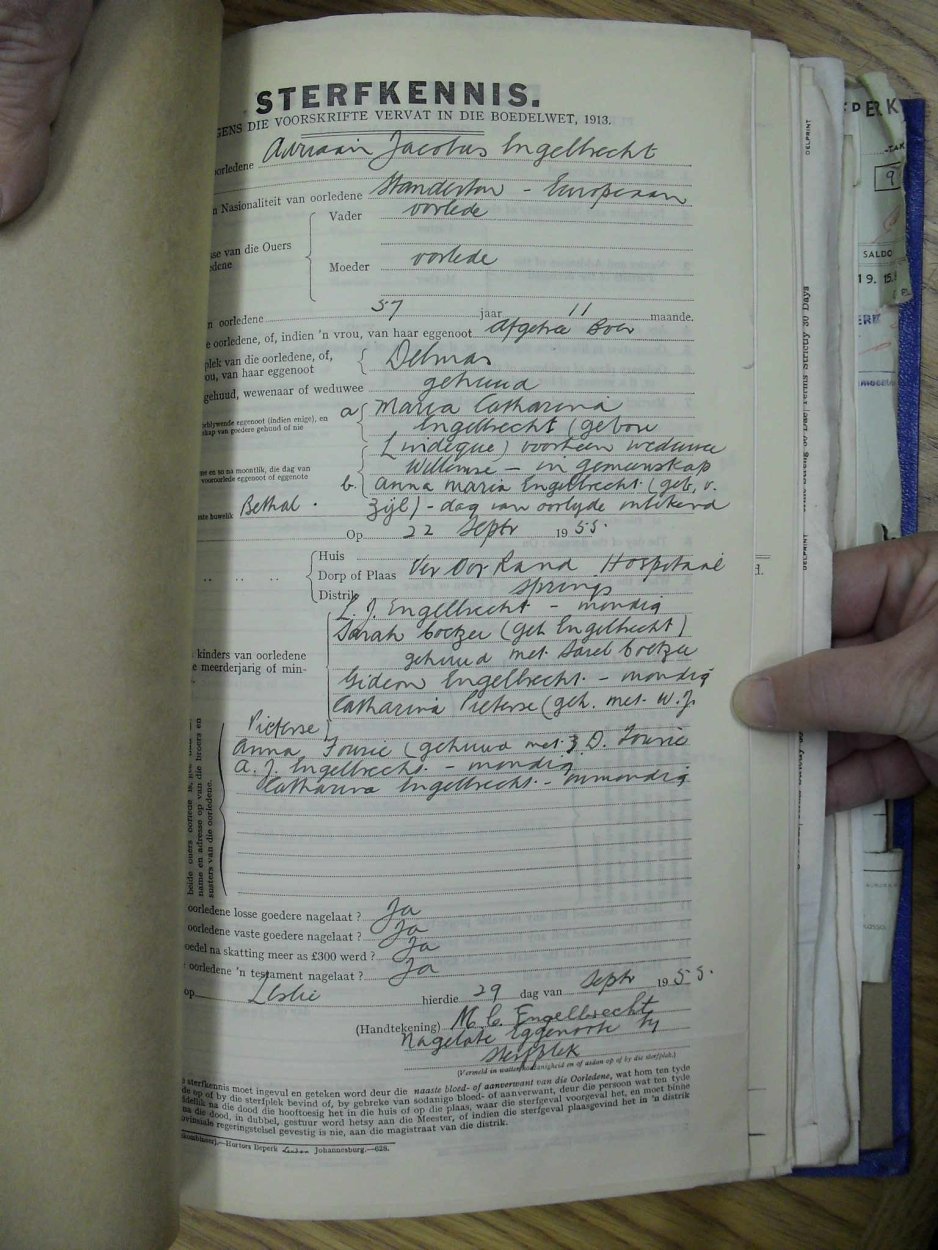 STERFKENNIS.
GENS DIE VOORSKRIFTE VERVAT IN DIE BOEDELWET, 1913.
oorledene Adriaan Jacobus Engelbrecht
n Nasionaliteit van oorledene Standerton - Europeaan
Vader oorlede
se van die Ouers
edene
Moeder oorlede
n oorledene 57 jaar 11 maande.
e oorledene, of, indien 'n vrou, van haar eggenoot Afgetree Boer
plek van die oorledene, of,
ou, van haar eggenoot Delmas
gehuud, wewenaar of weduwee gehuud
orblywende eggenoot (indien enige), en
skap van goedere gehuud of nie
a Maria Catharina
Engelbrecht (gebore
Lindeque) voorheen weduwee
Willemse - in gemeenskap
me en so na moontlik, die dag van
vooroorlede eggenoot of eggenote
b. Anna Maria Engelbrecht (geb. v.
ste huwelik Bethal. Zijl) - dag van oorlyde onbekend
Op 22 Septr 1955.
Huis
Dorp of Plaas Ver Oos Rand Hospitaal
Distrik Springs
L. J. Engelbrecht - mondig
Sarah Coetzee (geb Engelbrecht)
gehuud met Sarel Coetzee
kinders van oorledene
e meerderjarig of min-
Gideon Engelbrecht - mondig
Catharina Pieterse (geh. met W. J.
Pieterse)
Anna Fourie (gehuud met J. D. Fourie
A. J. Engelbrecht - mondig
Catharina Engelbrecht - onmondig
name en adresse op van die broers en
susters van die oorledene.
oorledene losse goedere nagelaat? Ja
oorledene vaste goedere nagelaat? Ja
oedel na skatting meer as £300 werd? Ja
oorledene 'n testament nagelaat? Ja
op Leslie hierdie 29 dag van Septr 1955.
(Handtekening) M. C. Engelbrecht
Nagelate Eggenoote by
sterfplek
(Vermeld in watter hoedanigheid en of aedan op of by die sterfplek.)
e sterfkennis moet ingevul en geteken word deur die naaste bloed- of aanverwant van die Oorledene, wat hom ten tyde
de op of by die sterfplek bevind of, by gebreke van sodanige bloed- of aanverwant, deur die persoon wat ten tyde
na die dood die hooftoesig het in die huis of op die plaas, waar die sterfgeval voorgeval het, en moet binne
na die dood, in dubbel, gestuur word hetsy aan die Meester, of indien die sterfgeval plaasgevind het in 'n distrik
ovinsiale regeringstelsel gevestig is nie, aan die magistraat van die distrik.
Hortors Beperk Johannesburg.—628.
DELPRINT
SALDO